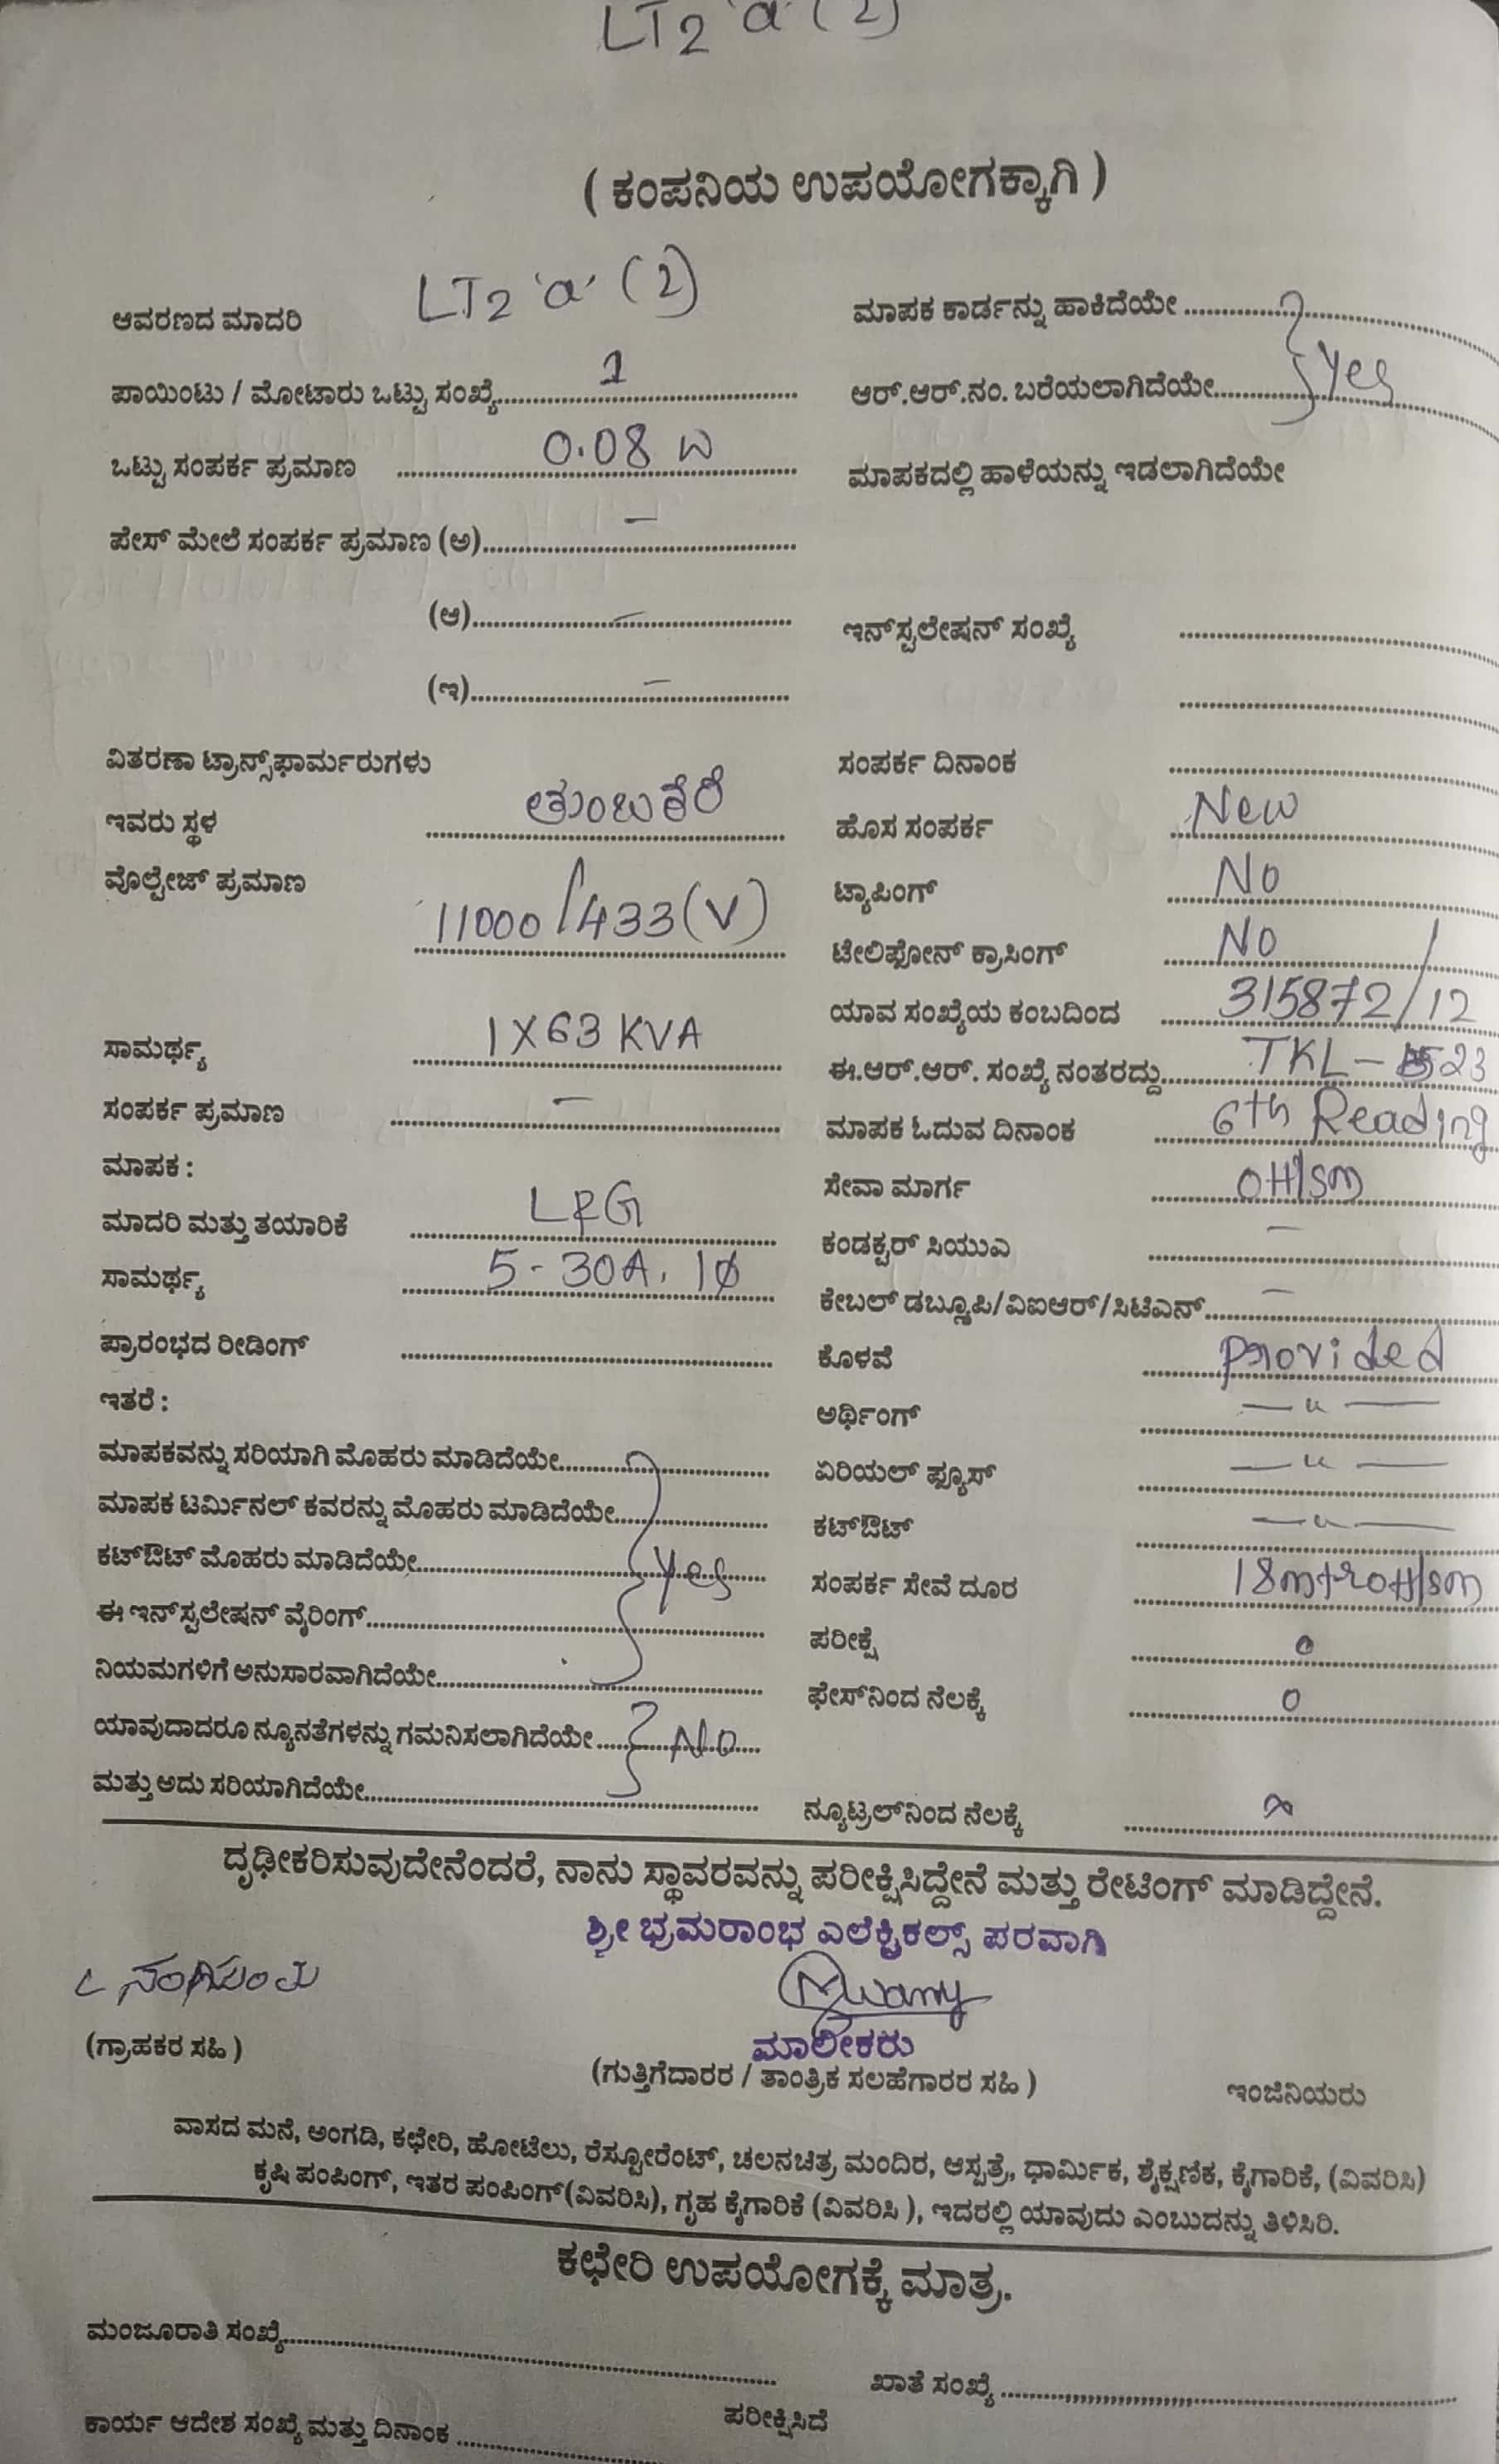 LT2 'a' (2)
( ಕಂಪನಿಯ ಉಪಯೋಗಕ್ಕಾಗಿ )
ಆವರಣದ ಮಾದರಿ LT2 'a' (2)
ಮಾಪಕ ಕಾರ್ಡನ್ನು ಹಾಕಿದೆಯೇ
ಪಾಯಿಂಟು / ಮೋಟಾರು ಒಟ್ಟು ಸಂಖ್ಯೆ 1
ಆರ್.ಆರ್.ನಂ. ಬರೆಯಲಾಗಿದೆಯೇ Yes
ಒಟ್ಟು ಸಂಪರ್ಕ ಪ್ರಮಾಣ 0.08 W
ಮಾಪಕದಲ್ಲಿ ಹಾಳೆಯನ್ನು ಇಡಲಾಗಿದೆಯೇ
ಪೇಸ್ ಮೇಲೆ ಸಂಪರ್ಕ ಪ್ರಮಾಣ (ಅ) –
(ಆ) –
ಇನ್‌ಸ್ಟಲೇಷನ್ ಸಂಖ್ಯೆ
(ಇ) –
ವಿತರಣಾ ಟ್ರಾನ್ಸ್‌ಫಾರ್ಮರುಗಳು
ಸಂಪರ್ಕ ದಿನಾಂಕ
ಇವರು ಸ್ಥಳ ತುಂಬಕೆರೆ
ಹೊಸ ಸಂಪರ್ಕ New
ವೊಲ್ಟೇಜ್ ಪ್ರಮಾಣ 11000/433(V)
ಟ್ಯಾಪಿಂಗ್ No
ಟೇಲಿಫೋನ್ ಕ್ರಾಸಿಂಗ್ No
ಯಾವ ಸಂಖ್ಯೆಯ ಕಂಬದಿಂದ 315872/12
ಸಾಮರ್ಥ್ಯ 1X63 KVA
ಈ.ಆರ್.ಆರ್. ಸಂಖ್ಯೆ ನಂತರದ್ದು TKL-
ಸಂಪರ್ಕ ಪ್ರಮಾಣ –
ಮಾಪಕ ಓದುವ ದಿನಾಂಕ 6th Reading
ಮಾಪಕ :
ಸೇವಾ ಮಾರ್ಗ OH/SM
ಮಾದರಿ ಮತ್ತು ತಯಾರಿಕೆ
ಕಂಡಕ್ಟರ್ ಸಿಯುಎ –
ಸಾಮರ್ಥ್ಯ 5-30A. 1Ø
ಕೇಬಲ್ ಡಬ್ಲ್ಯೂಪಿ/ವಿಐಆರ್/ಸಿಟಿಎಸ್ –
ಪ್ರಾರಂಭದ ರೀಡಿಂಗ್
ಕೊಳವೆ Provided
ಇತರೆ :
ಅರ್ಥಿಂಗ್ — " —
ಮಾಪಕವನ್ನು ಸರಿಯಾಗಿ ಮೊಹರು ಮಾಡಿದೆಯೇ
ಏರಿಯಲ್ ಫ್ಯೂಸ್ — " —
ಮಾಪಕ ಟರ್ಮಿನಲ್ ಕವರನ್ನು ಮೊಹರು ಮಾಡಿದೆಯೇ
ಕಟ್‌ಔಟ್ — " —
ಕಟ್‌ಔಟ್ ಮೊಹರು ಮಾಡಿದೆಯೇ Yes
ಸಂಪರ್ಕ ಸೇವೆ ದೂರ
ಈ ಇನ್‌ಸ್ಟಲೇಷನ್ ವೈರಿಂಗ್
ಪರೀಕ್ಷೆ 0
ನಿಯಮಗಳಿಗೆ ಅನುಸಾರವಾಗಿದೆಯೇ
ಫೇಸ್‌ನಿಂದ ನೆಲಕ್ಕೆ 0
ಯಾವುದಾದರೂ ನ್ಯೂನತೆಗಳನ್ನು ಗಮನಿಸಲಾಗಿದೆಯೇ No
ಮತ್ತು ಅದು ಸರಿಯಾಗಿದೆಯೇ
ನ್ಯೂಟ್ರಲ್‌ನಿಂದ ನೆಲಕ್ಕೆ
ದೃಢೀಕರಿಸುವುದೇನೆಂದರೆ, ನಾನು ಸ್ಥಾವರವನ್ನು ಪರೀಕ್ಷಿಸಿದ್ದೇನೆ ಮತ್ತು ರೇಟಿಂಗ್ ಮಾಡಿದ್ದೇನೆ.
ಶ್ರೀ ಭ್ರಮರಾಂಭ ಎಲೆಕ್ಟ್ರಿಕಲ್ಸ್ ಪರವಾಗಿ
ಮಾಲೀಕರು
(ಗ್ರಾಹಕರ ಸಹಿ )
(ಗುತ್ತಿಗೆದಾರರ / ತಾಂತ್ರಿಕ ಸಲಹೆಗಾರರ ಸಹಿ )
ಇಂಜಿನಿಯರು
ವಾಸದ ಮನೆ, ಅಂಗಡಿ, ಕಛೇರಿ, ಹೋಟೆಲು, ರೆಸ್ಟೋರೆಂಟ್, ಚಲನಚಿತ್ರ ಮಂದಿರ, ಆಸ್ಪತ್ರೆ, ಧಾರ್ಮಿಕ, ಶೈಕ್ಷಣಿಕ, ಕೈಗಾರಿಕೆ, (ವಿವರಿಸಿ)
ಕೃಷಿ ಪಂಪಿಂಗ್, ಇತರ ಪಂಪಿಂಗ್(ವಿವರಿಸಿ), ಗೃಹ ಕೈಗಾರಿಕೆ (ವಿವರಿಸಿ ), ಇದರಲ್ಲಿ ಯಾವುದು ಎಂಬುದನ್ನು ತಿಳಿಸಿರಿ.
ಕಛೇರಿ ಉಪಯೋಗಕ್ಕೆ ಮಾತ್ರ.
ಮಂಜೂರಾತಿ ಸಂಖ್ಯೆ
ಖಾತೆ ಸಂಖ್ಯೆ
ಕಾರ್ಯ ಆದೇಶ ಸಂಖ್ಯೆ ಮತ್ತು ದಿನಾಂಕ
ಪರೀಕ್ಷಿಸಿದೆ